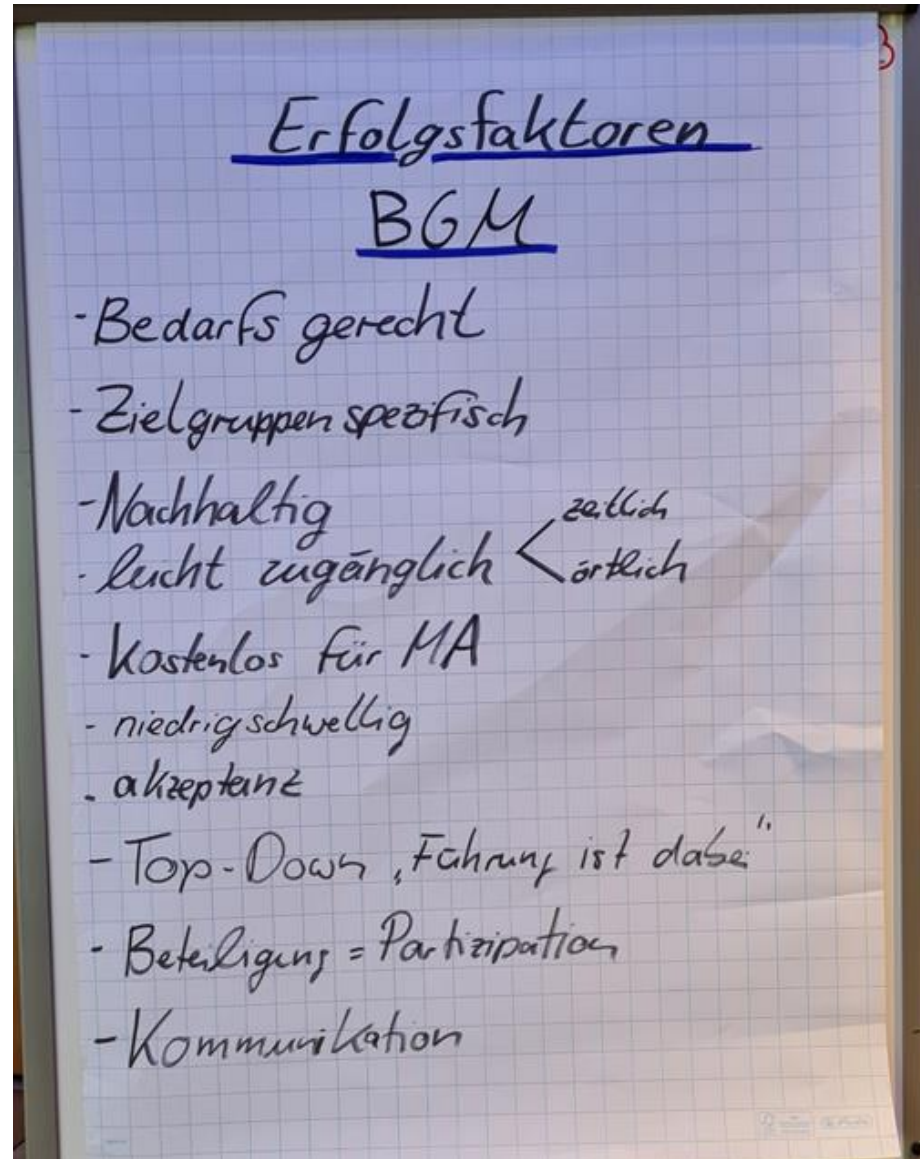 Erfolgsfaktoren
BGM
- Bedarfs gerecht
- Zielgruppen spezifisch
- Nachhaltig
- leicht zugänglich < zeitlich
örtlich
- Kostenlos für MA
- niedrigschwellig
- akzeptanz
- Top-Down „Führung ist dabei"
- Beteiligung = Partizipation
- Kommunikation